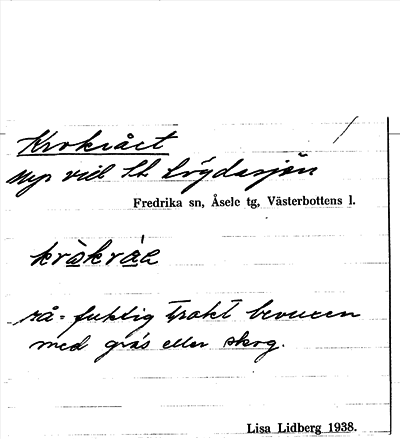 Krokrået
nyp vid St Lögdasjön
Fredrika sn, Åsele tg, Västerbottens l.
kròkrá̱e
rå = fuktig trakt bevuxen
med gräs eller skog.
Lisa Lidberg 1938.